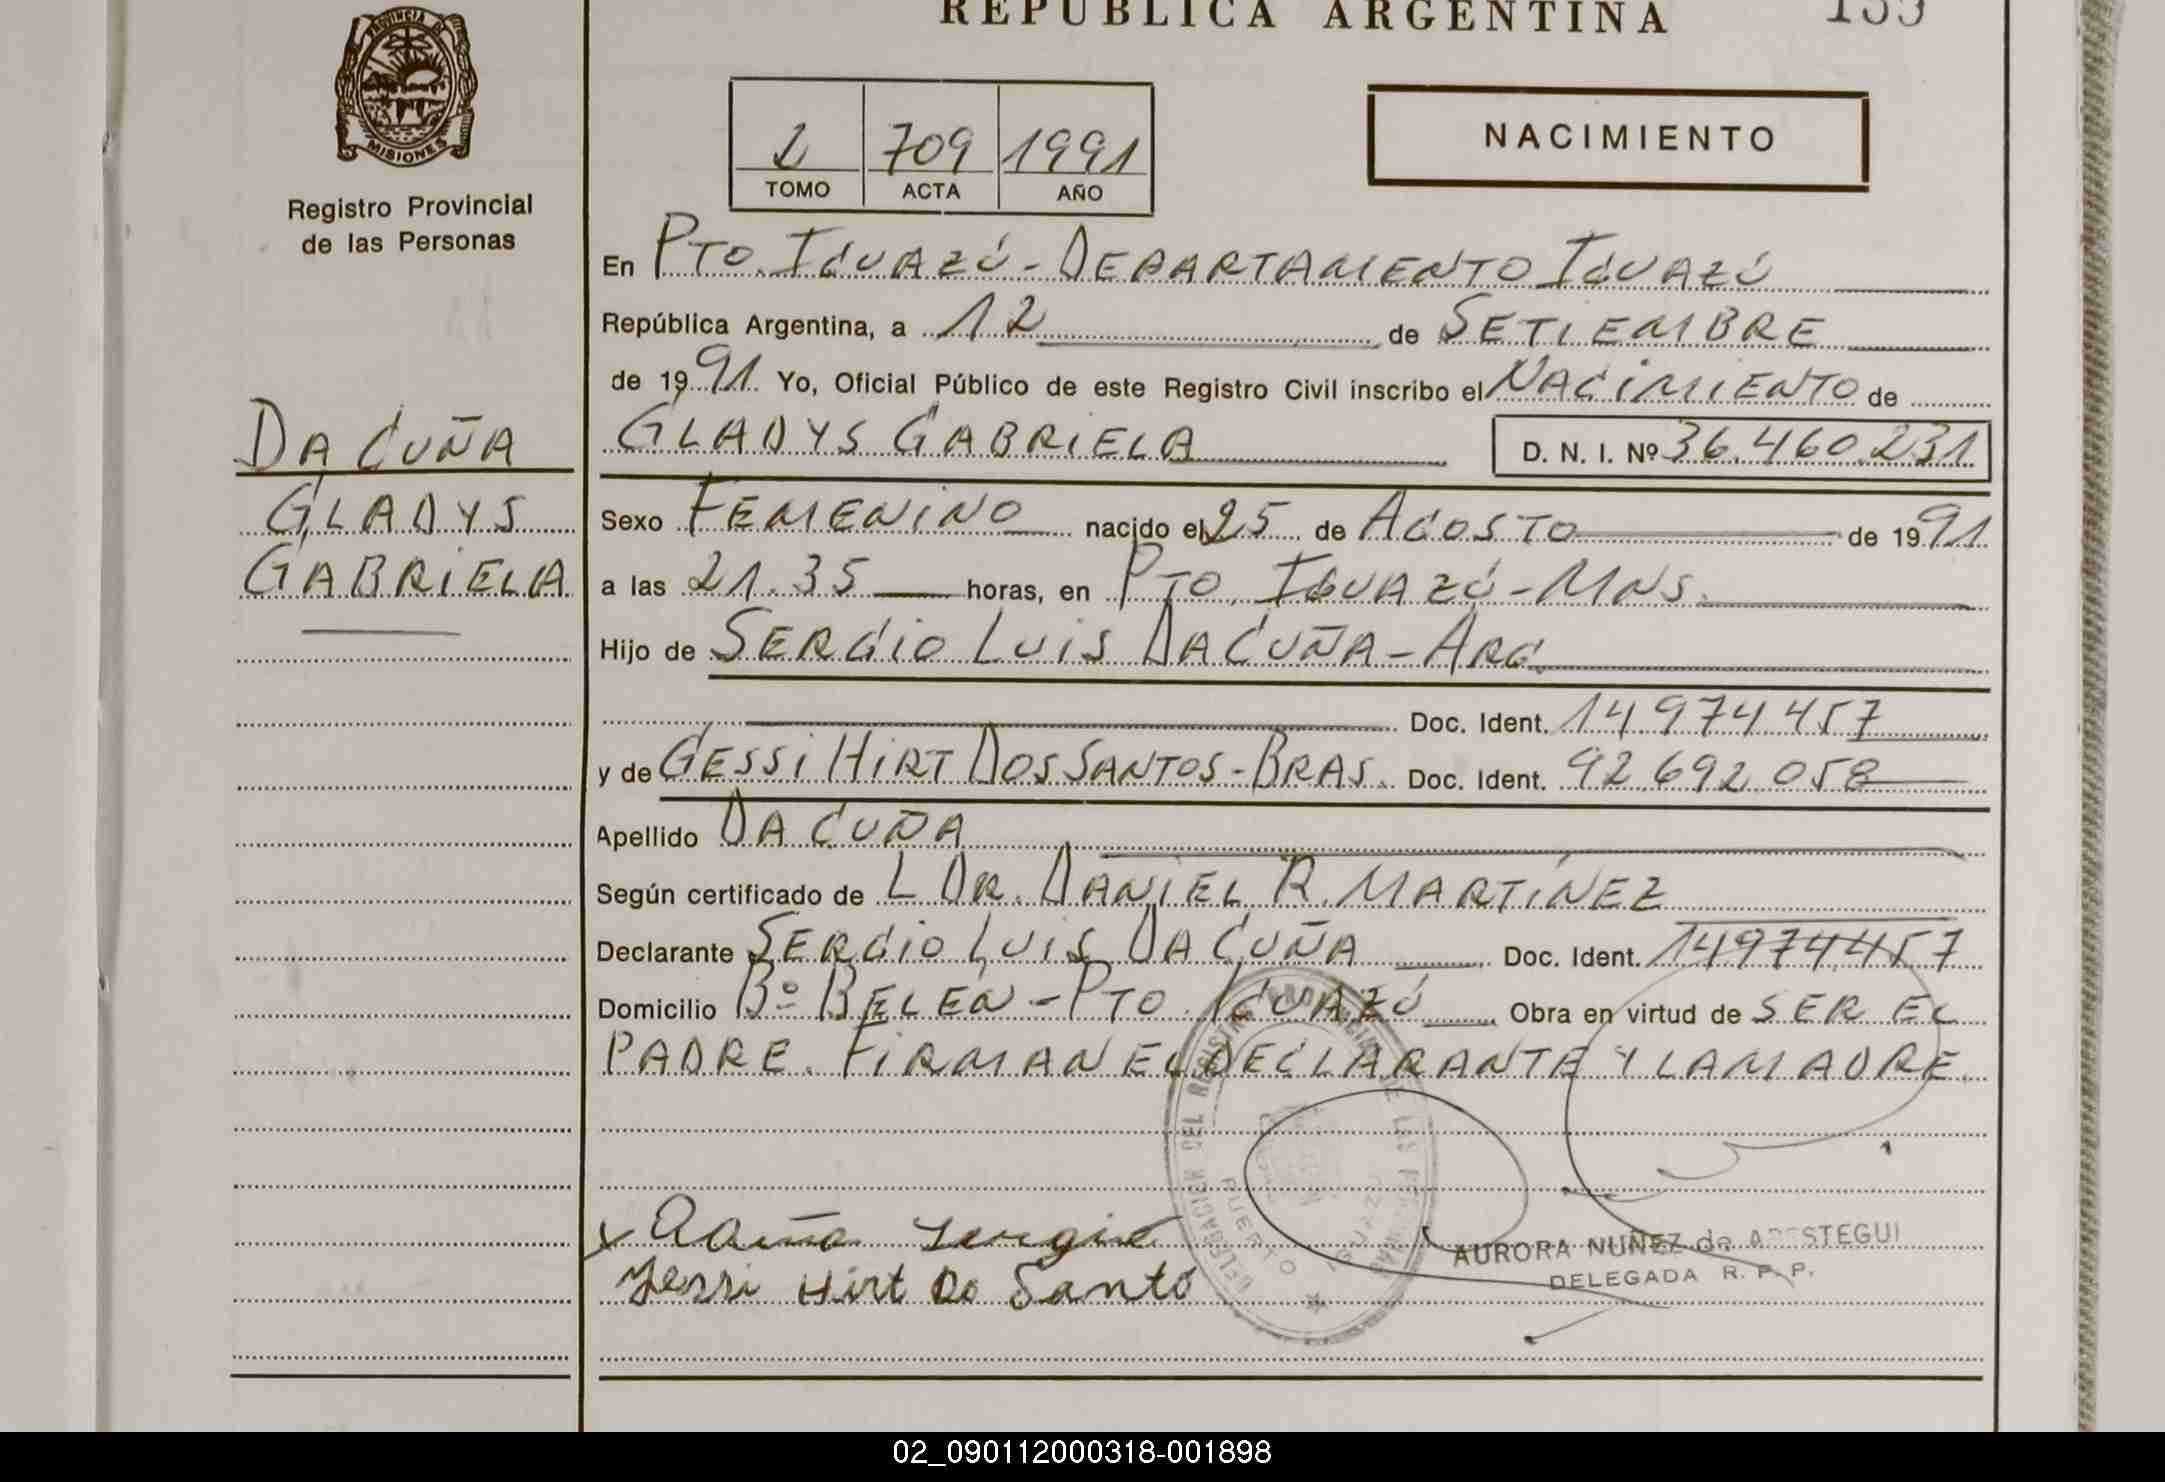 REPUBLICA ARGENTINA
PROVINCIA DE
MISIONES
Registro Provincial
de las Personas
2 709 1991
TOMO ACTA AÑO
NACIMIENTO
En PTO. IGUAZÚ - DEPARTAMENTO IGUAZÚ
República Argentina, a 12 de SETIEMBRE
de 1991 Yo, Oficial Público de este Registro Civil inscribo el NACIMIENTO de
GLADYS GABRIELA D. N. I. Nº 36.460.231
DA CUÑA
GLADYS
GABRIELA
Sexo FEMENINO nacido el 25 de AGOSTO de 1991
a las 21.35 horas, en PTO. IGUAZÚ - MNS.
Hijo de SERGIO LUIS DA CUÑA - ARG.
Doc. Ident. 14.974.457
y de GESSI HIRT DOS SANTOS - BRAS. Doc. Ident. 92.692.058
Apellido DA CUÑA
Según certificado de L DR. DANIEL R. MARTÍNEZ
Declarante SERGIO LUIS DA CUÑA Doc. Ident. 14974457
Domicilio Bº BELEN - PTO. IGUAZÚ Obra en virtud de SER EL
PADRE. FIRMAN EL DECLARANTE Y LA MADRE.
DELEGACION DEL REGISTRO PROVINCIAL DE LAS PERSONAS
PUERTO IGUAZU
Sergio
Gessi Hirt Do Santo
AURORA NUÑEZ de ARESTEGUI
DELEGADA R. P. P.
02_090112000318-001898